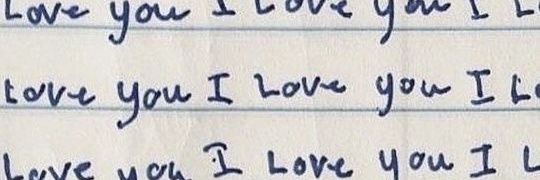 Love you I Love you I L
Love you I Love you I Lo
Love you I Love you I L